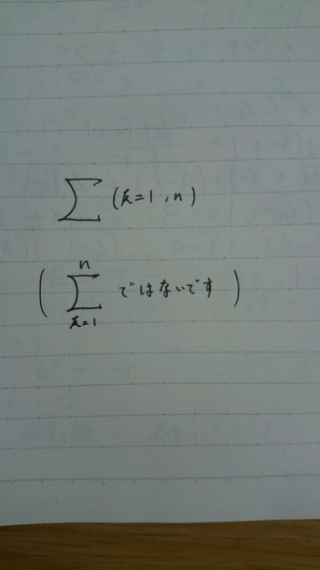 ∑ (k=1, n)
( n∑k=1 ではないです )